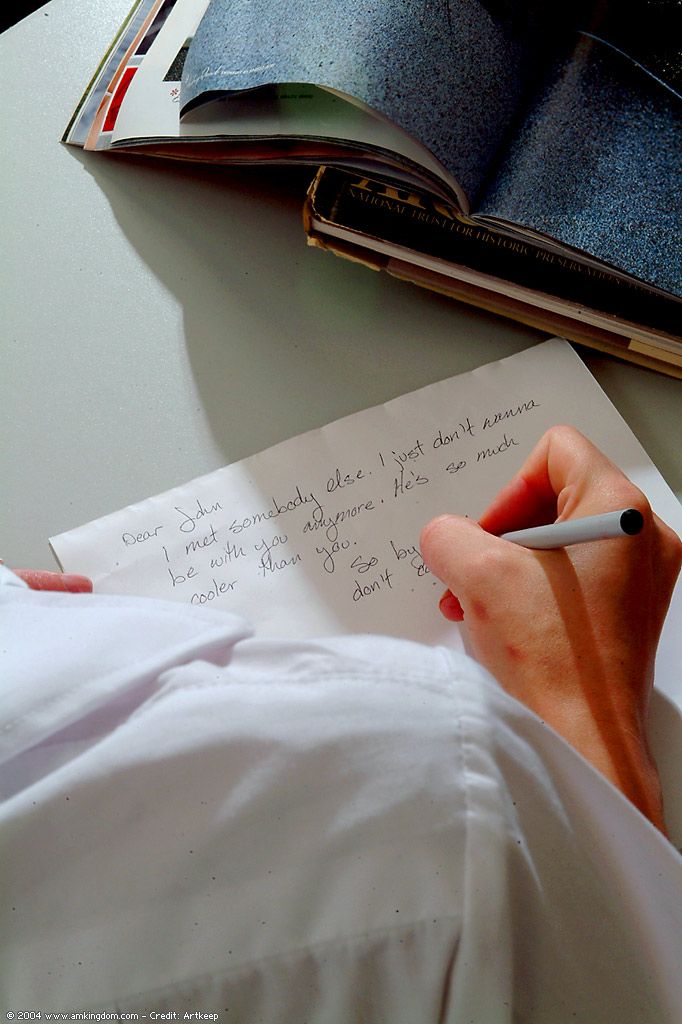 NATIONAL TRUST FOR HISTORIC PRESERVATION
Dear John
I met somebody else. I just don't wanna
be with you anymore. He's so much
cooler than you.
So by
don't
© 2004 www.amkingdom.com - Credit: Artkeep